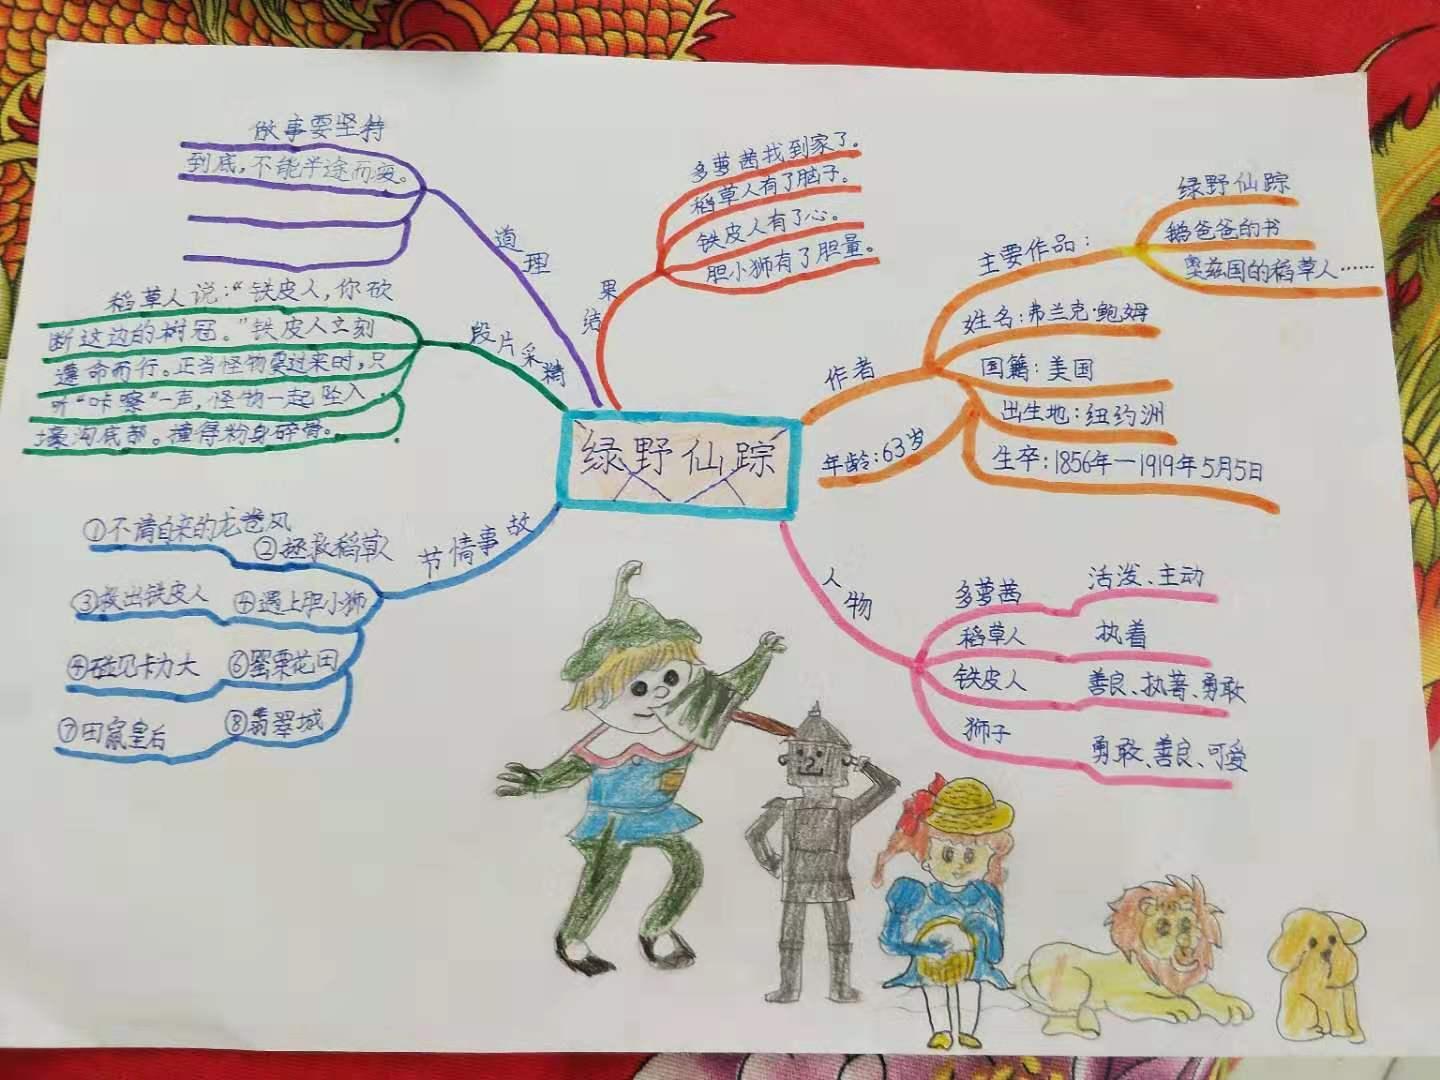 绿野仙踪
道理
做事要坚持
到底，不能半途而废。
结果
多萝茜找到家了。
稻草人有了脑子。
铁皮人有了心。
胆小狮有了胆量。
作者
主要作品：
绿野仙踪
鹅爸爸的书
奥兹国的稻草人……
姓名：弗兰克·鲍姆
国籍：美国
出生地：纽约洲
生卒：1856年一1919年5月5日
年龄：63岁
段片采精
稻草人说：“铁皮人，你砍
断这边的树冠。”铁皮人立刻
遵命而行。正当怪物要过来时，只
听“咔嚓”一声，怪物一起坠入
壕沟底部。撞得粉身碎骨。
节情事故
①不请自来的龙卷风
②拯救稻草人
③救出铁皮人 ④遇上胆小狮
④碰见卡力大 ⑥罂粟花田
⑦田鼠皇后 ⑧翡翠城
人物
多萝茜 活泼、主动
稻草人 执着
铁皮人 善良、执着、勇敢
狮子 勇敢、善良、可爱